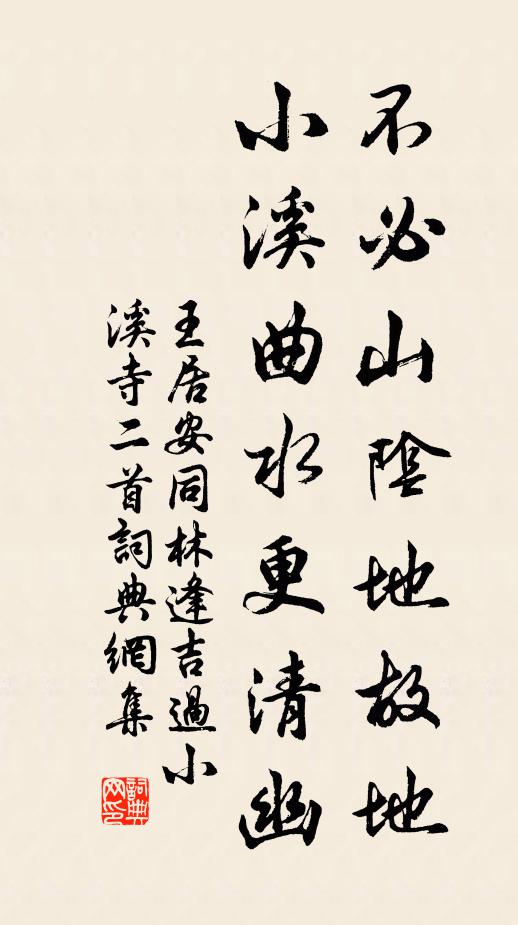 不必山陰地故地
小溪曲水更清幽
王居安同林逢吉過小
溪寺二首詞典網集
詞典網印